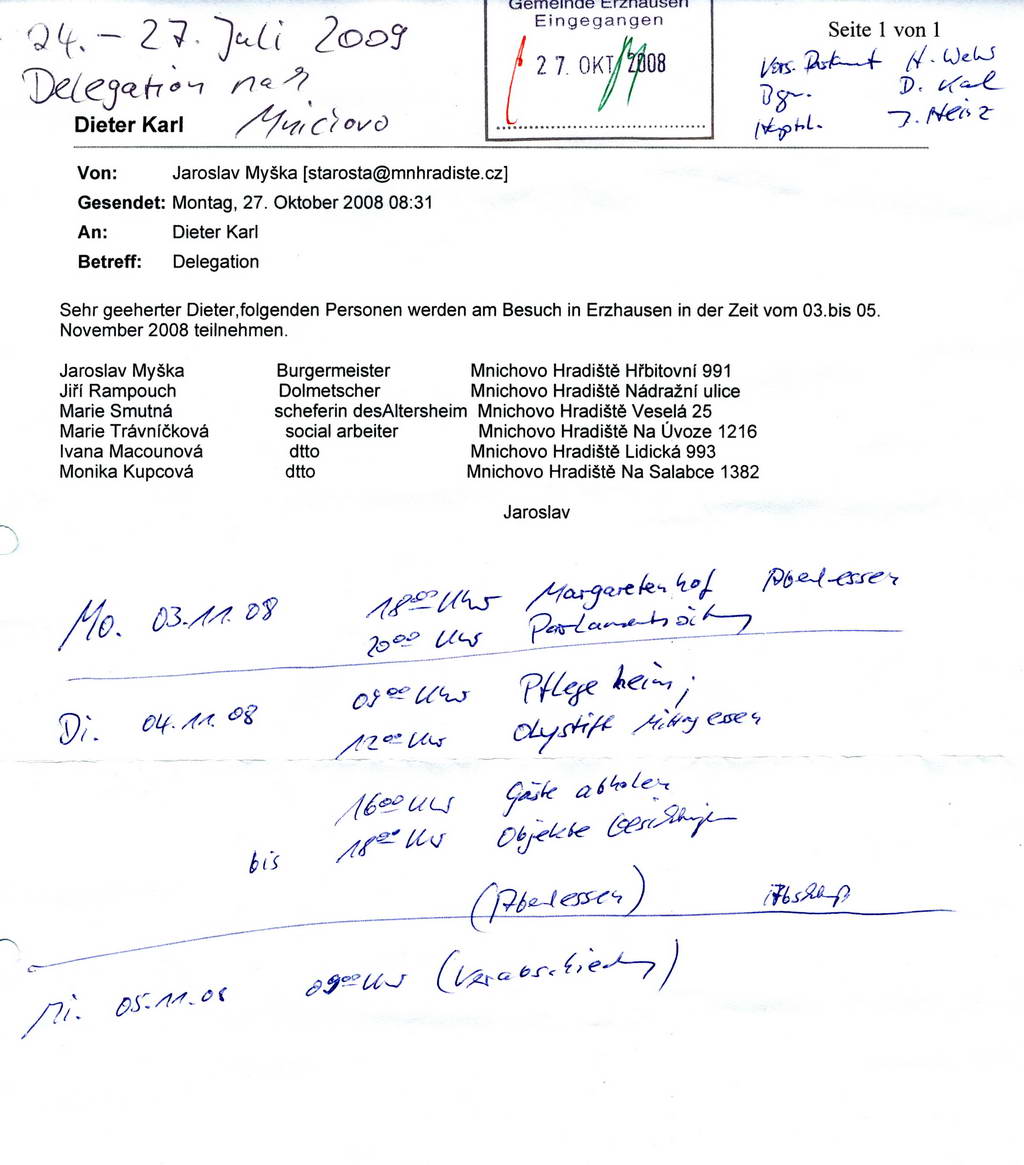 24. – 27. Juli 2009
Delegation nach
Mnichovo
Gemeinde Erzhausen
Eingegangen
27. OKT. 2008
Seite 1 von 1
H. Wels
Bgr. D. Karl
J. Heinz
Dieter Karl
Von: Jaroslav Myška [starosta@mnhradiste.cz]
Gesendet: Montag, 27. Oktober 2008 08:31
An: Dieter Karl
Betreff: Delegation
Sehr geeherter Dieter,folgenden Personen werden am Besuch in Erzhausen in der Zeit vom 03.bis 05.
November 2008 teilnehmen.
Jaroslav Myška Burgermeister Mnichovo Hradiště Hřbitovní 991
Jiří Rampouch Dolmetscher Mnichovo Hradiště Nádražní ulice
Marie Smutná scheferin desAltersheim Mnichovo Hradiště Veselá 25
Marie Trávníčková social arbeiter Mnichovo Hradiště Na Úvoze 1216
Ivana Macounová dtto Mnichovo Hradiště Lidická 993
Monika Kupcová dtto Mnichovo Hradiště Na Salabce 1382
Jaroslav
Mo. 03.11.08 18 00 Uhr Margaretenhof Abendessen
20 00 Uhr Parlamentssitzung
Di. 04.11.08 09 00 Uhr Pflegeheim;
12 00 Uhr Mittagessen
16 00 Uhr Gäste abholen
bis 18 00 Uhr Objekte besichtigen
(Abendessen) Abschluß
Mi. 05.11.08 09 00 Uhr (Verabschiedung)